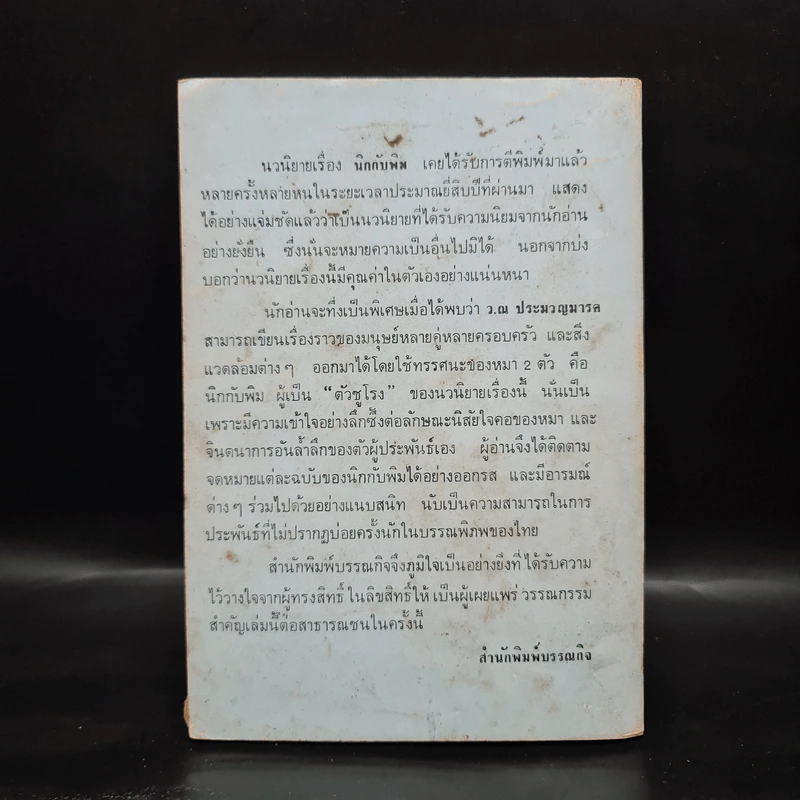 นวนิยายเรื่อง นิกกับพิม เคยได้รับการตีพิมพ์มาแล้ว
หลายครั้งหลายหนในระยะเวลาประมาณยี่สิบปีที่ผ่านมา แสดง
ได้อย่างแจ่มชัดแล้วว่าเป็นนวนิยายที่ได้รับความนิยมจากนักอ่าน
อย่างยั่งยืน ซึ่งนั่นจะหมายความเป็นอื่นไปมิได้ นอกจากบ่ง
บอกว่านวนิยายเรื่องนี้มีคุณค่าในตัวเองอย่างแน่นหนา
นักอ่านจะทึ่งเป็นพิเศษเมื่อได้พบว่า ว.ณ ประมวญมารค
สามารถเขียนเรื่องราวของมนุษย์หลายคู่หลายครอบครัว และสิ่ง
แวดล้อมต่างๆ ออกมาได้โดยใช้ทรรศนะของหมา 2 ตัว คือ
นิกกับพิม ผู้เป็น “ตัวชูโรง” ของนวนิยายเรื่องนี้ นั่นเป็น
เพราะมีความเข้าใจอย่างลึกซึ้งต่อลักษณะนิสัยใจคอของหมา และ
จินตนาการอันล้ำลึกของตัวผู้ประพันธ์เอง ผู้อ่านจึงได้ติดตาม
จดหมายแต่ละฉบับของนิกกับพิมได้อย่างออกรส และมีอารมณ์
ต่างๆ ร่วมไปด้วยอย่างแนบสนิท นับเป็นความสามารถในการ
ประพันธ์ที่ไม่ปรากฏบ่อยครั้งนักในบรรณพิภพของไทย
สำนักพิมพ์บรรณกิจจึงภูมิใจเป็นอย่างยิ่งที่ ได้รับความ
ไว้วางใจจากผู้ทรงสิทธิ์ ในลิขสิทธิ์ให้ เป็นผู้เผยแพร่ วรรณกรรม
สำคัญเล่มนี้ต่อสาธารณชนในครั้งนี้
สำนักพิมพ์บรรณกิจ